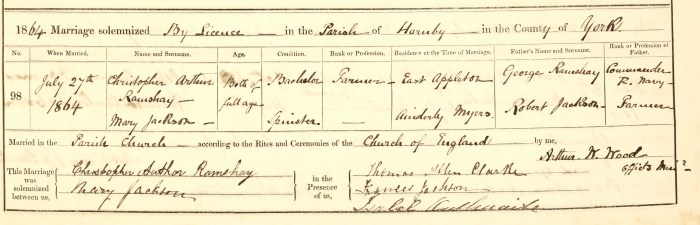 1864 Marriage solemnized By Licence in the Parish of Hornby in the County of York.
No. When Married. Name and Surname. Age. Condition. Rank or Profession. Residence at the Time of Marriage. Father's Name and Surname. Rank or Profession of Father.
98 July 27th 1864 Christopher Arthur Ramshay Both of full age Bachelor Farmer East Appleton George Ramshay Commander R. Navy
Mary Jackson Spinster Ainderby Myers Robert Jackson Farmer
Married in the Parish Church according to the Rites and Ceremonies of the Church of England by me,
Arthur W. Wood
This Marriage was solemnized between us, Christopher Arthur Ramshay in the Presence of us, Thomas Clarke
Mary Jackson Frances Jackson
Isabel